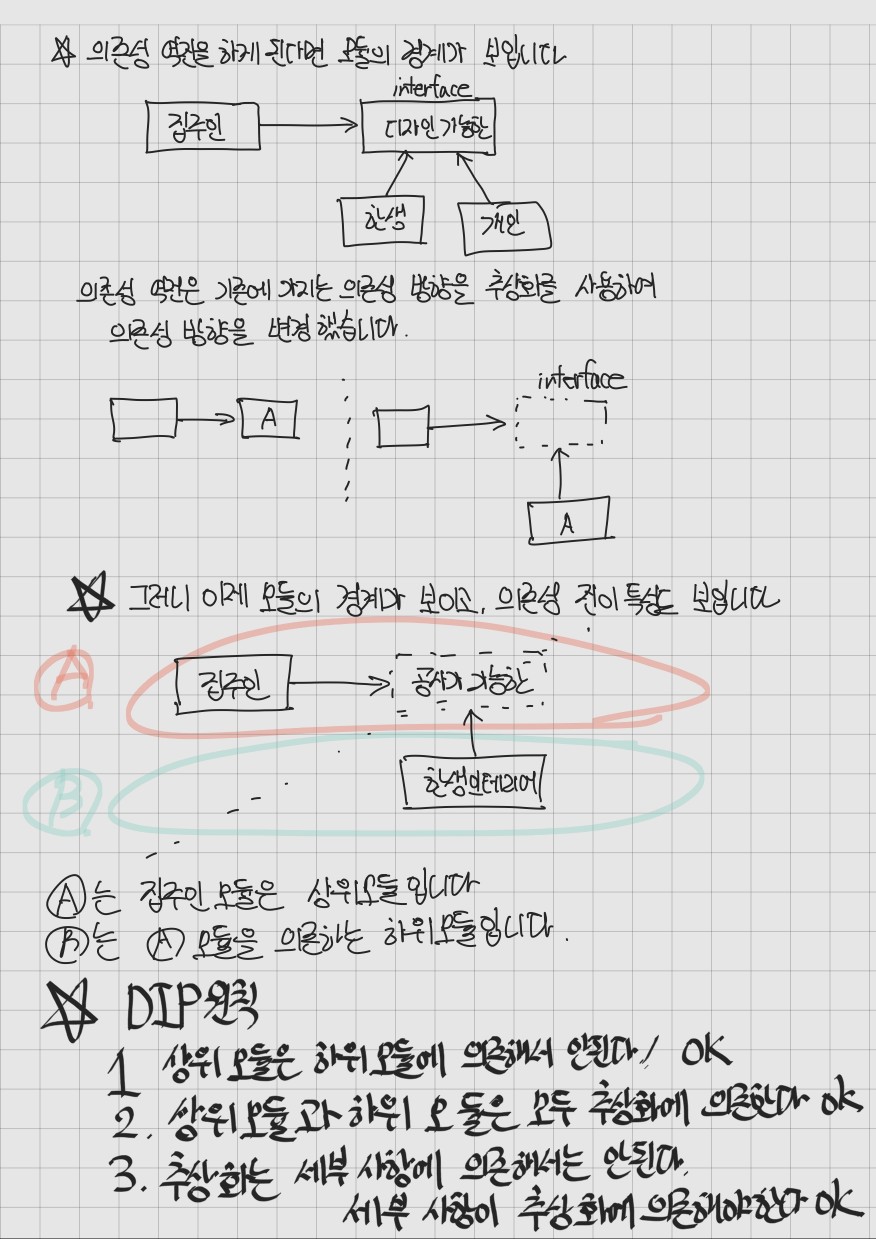 ☆ 의존성 역전을 하게 된다면 모듈의 경계가 보입니다
interface
집주인
디자인 가능한
한샘
개인
의존성 역전은 기존에 가지는 의존성 방향을 추상화를 사용하여
의존성 방향을 변경했습니다.
interface
A
A
☆ 그러니 이제 모듈의 경계가 보이고, 의존성 전이 특성도 보입니다
A
집주인
공사가 가능한
B
한샘인테리어
Ⓐ는 집주인 모듈은 상위모듈입니다
Ⓑ는 Ⓐ 모듈을 의존하는 하위모듈입니다.
☆ DIP원칙
1 상위 모듈은 하위모듈에 의존해서 안된다! OK
2. 상위모듈과 하위 모듈은 모두 추상화에 의존한다 ok
3. 추상화는 세부 사항에 의존해서는 안된다.
세부 사항이 추상화에 의존해야한다 ok